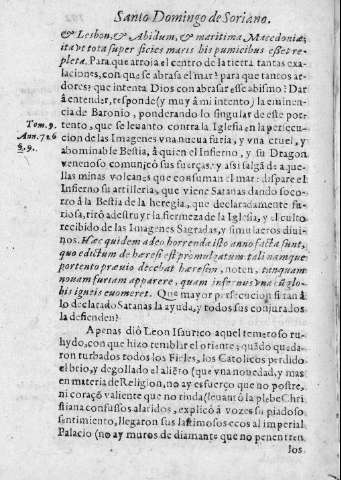 Santo Domingo de Soriano.
& Lesbon, & Abidum, & maritima Macedoniæ;
ita ve tota super ficies maris his pumicibus esset re-
pleta. Para que arroja el centro de la tierra tantas exa-
laciones, con que se abrasa el mar? para que tantos ar-
dores? que intenta Dios con abrasar esse abismo? Dar
á entender, responde (y muy á mi intento) la eminen-
cia de Baronio, ponderando lo singular de este por-
Tom. 9.
tento, que se leuanto contra la Iglesia en la persecu-
Ann. 726
cion de las Imagenes vna nueua furia, y vna cruel, y
9. 9.
abominable Bestia, à quien el Infierno, y su Dragon
venenoso comunicó sus fuerças, y assi salgã de aque-
llas minas volcanes que consuman el mar: dispare el
Infierno su artilleria, que viene Satanas dando soco-
rro á la Bestia de la heregia, que declaradamente fu-
riosa, tiró a destruyr la firmeza de la Iglesia, y el culto
recibido de las Imagenes Sagradas, y simulacros diui-
nos. Hæc quidem adeo horrenda isto anno facta sunt,
quo edictum de hæresi est promulgatum tali namque
portento præuio decebat hæresim, noten, tanquam
nouam furiam apparere, quam infernus vna cũ glo-
bis igneis euomeret. Que mayor persecucion si tan à
lo declarado Satanas la ayuda, y todos sus conjurados
la defienden?
Apenas dió Leon Isaurico aquel temeroso ru-
hydo, con que hizo temblar el oriente; quãdo queda-
ron turbados todos los Fieles, los Catolicos perdido
el brio, y degollado el aliẽto (que vna nouedad, y mas
en materia de Religion, no ay esfuerço que no postre,
ni coraçõ valiente que no rinda (leuantó la plebe Chri
stiana confussos alaridos, explicó à vozes su piadoso
sentimiento, llegaron sus lastimosos ecos al imperial
Palacio (no ay muros de diamante que no penetren
los